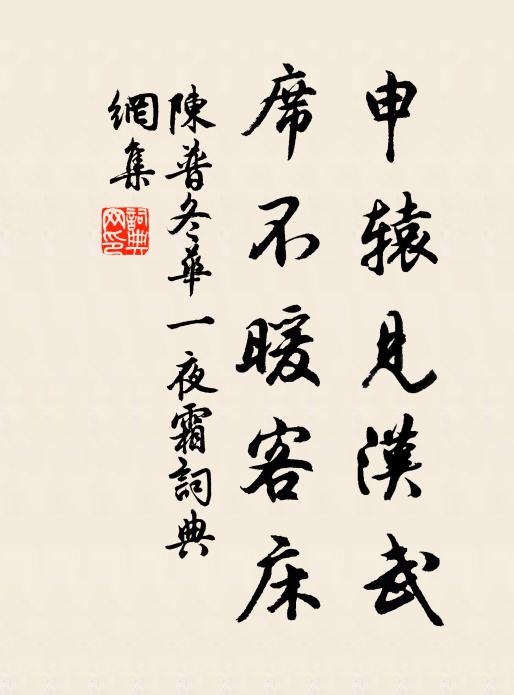 申辕見漢武
席不暖客床
陳普冬華一夜霜詞典
網集
詞典
网印